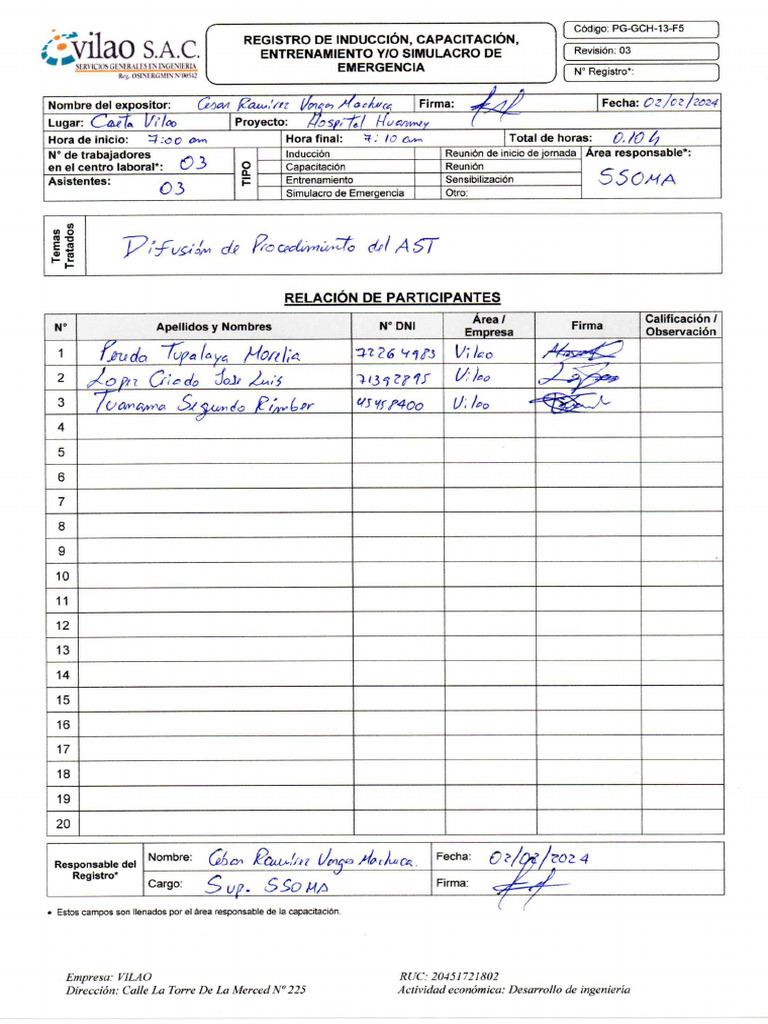 vilao S.A.C.
SERVICIOS GENERALES EN INGENIERIA
Reg. OSINERGMIN Nº00542
REGISTRO DE INDUCCIÓN, CAPACITACIÓN,
ENTRENAMIENTO Y/O SIMULACRO DE
EMERGENCIA
Código: PG-GCH-13-F5
Revisión: 03
N° Registro*:
Nombre del expositor: César Ramírez Vargas Machuca Firma: Fecha: 02/02/2024
Lugar: Caseta Vilao Proyecto: Hospital Huarmey
Hora de inicio: 7:00 am Hora final: 7:10 am Total de horas: 0.10h
N° de trabajadores en el centro laboral*: 03
Asistentes: 03
TIPO
Inducción
Capacitación
Entrenamiento
Simulacro de Emergencia
Reunión de inicio de jornada
Reunión
Sensibilización
Otro:
Área responsable*:
SSOMA
Temas Tratados
Difusión de Procedimiento del AST
RELACIÓN DE PARTICIPANTES
N° Apellidos y Nombres N° DNI Área / Empresa Firma Calificación / Observación
1 Pereda Tupalaya Morelia 72264983 Vilao
2 Lopez Criado Jose Luis 71392895 Vilao
3 Tuanama Segundo Rimber 45458400 Vilao
4
5
6
7
8
9
10
11
12
13
14
15
16
17
18
19
20
Responsable del Registro*
Nombre: César Ramírez Vargas Machuca. Fecha: 02/02/2024
Cargo: Sup. SSOMA Firma:
• Estos campos son llenados por el área responsable de la capacitación.
Empresa: VILAO RUC: 20451721802
Dirección: Calle La Torre De La Merced Nº 225 Actividad económica: Desarrollo de ingeniería